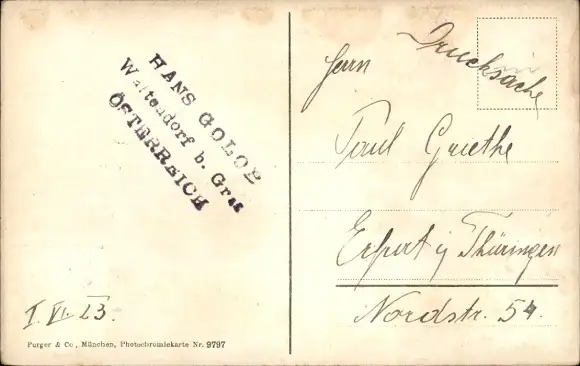 HANS GOLOB
Waltendorf b. Graz
ÖSTERREICH
I. VI. 23.
Purger & Co, München, Photochromiekarte Nr. 9797
Drucksache
Herrn
Paul Goethe
Erfurt i/ Thüringen
Nordstr. 54.